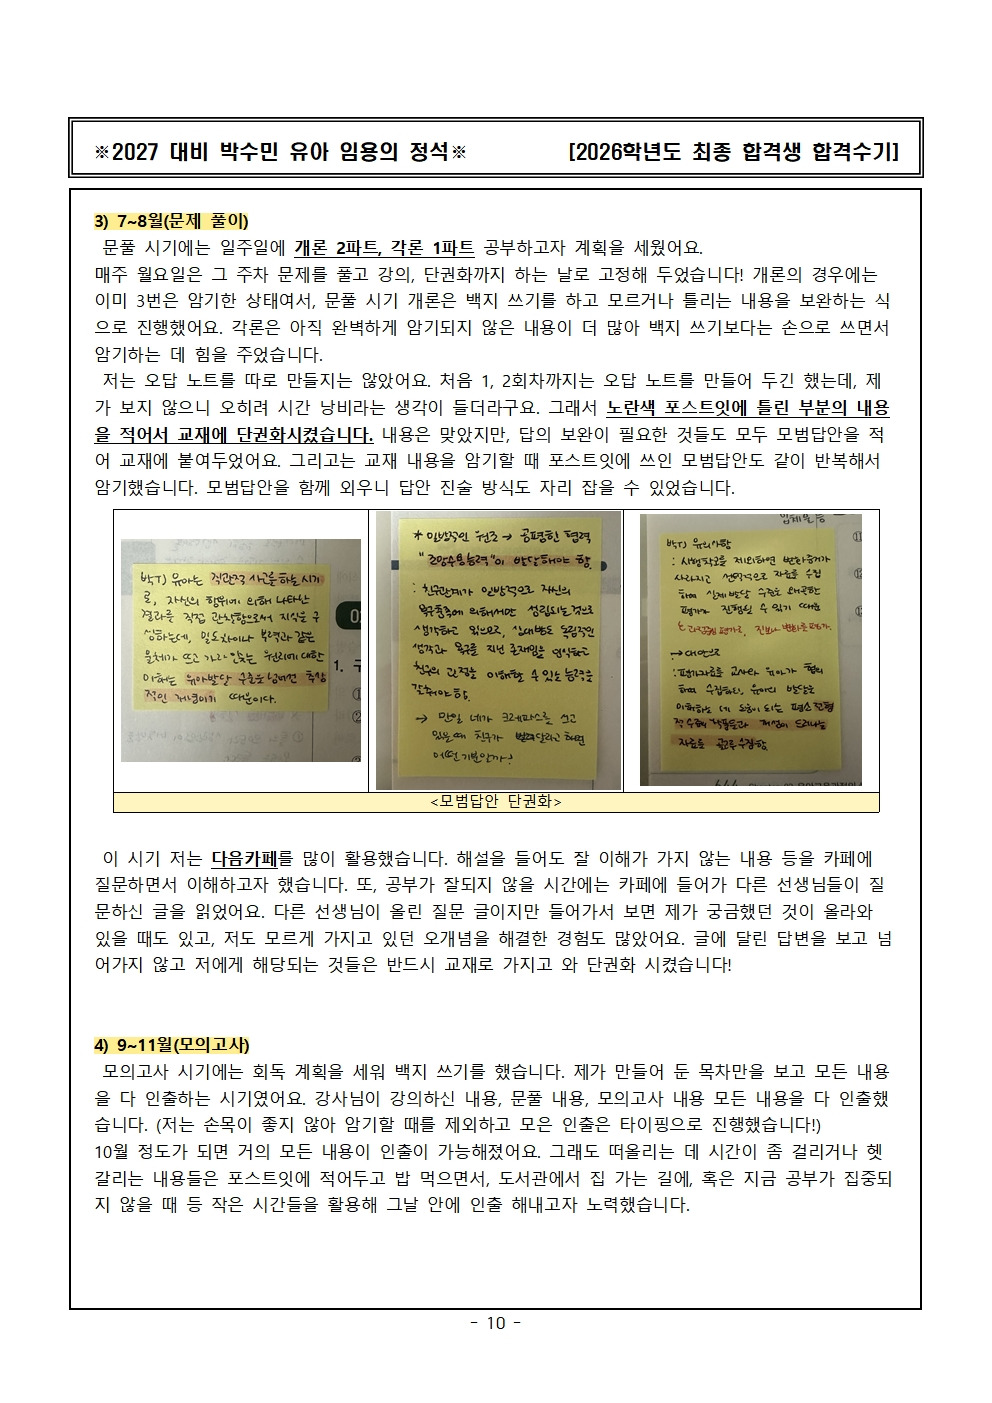 ※2027 대비 박수민 유아 임용의 정석※ [2026학년도 최종 합격생 합격수기]
3) 7~8월(문제 풀이)
문풀 시기에는 일주일에 개론 2파트, 각론 1파트 공부하고자 계획을 세웠어요.
매주 월요일은 그 주차 문제를 풀고 강의, 단권화까지 하는 날로 고정해 두었습니다! 개론의 경우에는
이미 3번은 암기한 상태여서, 문풀 시기 개론은 백지 쓰기를 하고 모르거나 틀리는 내용을 보완하는 식
으로 진행했어요. 각론은 아직 완벽하게 암기되지 않은 내용이 더 많아 백지 쓰기보다는 손으로 쓰면서
암기하는 데 힘을 주었습니다.
저는 오답 노트를 따로 만들지는 않았어요. 처음 1, 2회차까지는 오답 노트를 만들어 두긴 했는데, 제
가 보지 않으니 오히려 시간 낭비라는 생각이 들더라구요. 그래서 노란색 포스트잇에 틀린 부분의 내용
을 적어서 교재에 단권화시켰습니다. 내용은 맞았지만, 답의 보완이 필요한 것들도 모두 모범답안을 적
어 교재에 붙여두었어요. 그리고는 교재 내용을 암기할 때 포스트잇에 쓰인 모범답안도 같이 반복해서
암기했습니다. 모범답안을 함께 외우니 답안 진술 방식도 자리 잡을 수 있었습니다.
박T) 유아는 직관적 사고를 하는 시기
로, 자신의 행위에 의해 나타난
결과를 직접 관찰함으로써 지식을 구
성하는데, 밀도차이나 부력과 같은
물체가 뜨고 가라앉는 원리에 대한
이해는 유아발달 수준을 넘어선 추상
적인 개념이기 때문이다.
1. 구
* 일방적인 원조 → 공평한 협력
"조망수용능력"이 발달해야 함.
: 친구관계가 일방적으로 자신의
욕구충족에 의해서만 성립되는것으로
생각하고 있으므로, 상대방도 독립적인
생각과 욕구를 지닌 존재임을 인식하고
친구의 관점을 이해할 수 있는 능력을
갖춰야 함.
→ 만일 네가 크레파스를 쓰고
있을때 친구가 빌려달라고 하면
어떤 기분일까?
박T) 유의사항
: 시행착오를 제외하면 변화증거가
사라지고 선택적으로 자료를 수집
하여 실제 발달 수준을 왜곡한
평가가 진행될 수 있기 때문
는 과정중심 평가로, 진보나 변화를 평가.
→ 대안으로
: 평가자료를 교사와 유아가 협의
하여 수집하되, 유아의 발달을
이해하는 데 도움이 되는 평소 전형
적 수준의 작품들과 개성이 드러나는
자료를 골고루 수집함.
<모범답안 단권화>
이 시기 저는 다음카페를 많이 활용했습니다. 해설을 들어도 잘 이해가 가지 않는 내용 등을 카페에
질문하면서 이해하고자 했습니다. 또, 공부가 잘되지 않을 시간에는 카페에 들어가 다른 선생님들이 질
문하신 글을 읽었어요. 다른 선생님이 올린 질문 글이지만 들어가서 보면 제가 궁금했던 것이 올라와
있을 때도 있고, 저도 모르게 가지고 있던 오개념을 해결한 경험도 많았어요. 글에 달린 답변을 보고 넘
어가지 않고 저에게 해당되는 것들은 반드시 교재로 가지고 와 단권화 시켰습니다!
4) 9~11월(모의고사)
모의고사 시기에는 회독 계획을 세워 백지 쓰기를 했습니다. 제가 만들어 둔 목차만을 보고 모든 내용
을 다 인출하는 시기였어요. 강사님이 강의하신 내용, 문풀 내용, 모의고사 내용 모든 내용을 다 인출했
습니다. (저는 손목이 좋지 않아 암기할 때를 제외하고 모은 인출은 타이핑으로 진행했습니다!)
10월 정도가 되면 거의 모든 내용이 인출이 가능해졌어요. 그래도 떠올리는 데 시간이 좀 걸리거나 헷
갈리는 내용들은 포스트잇에 적어두고 밥 먹으면서, 도서관에서 집 가는 길에, 혹은 지금 공부가 집중되
지 않을 때 등 작은 시간들을 활용해 그날 안에 인출 해내고자 노력했습니다.
- 10 -